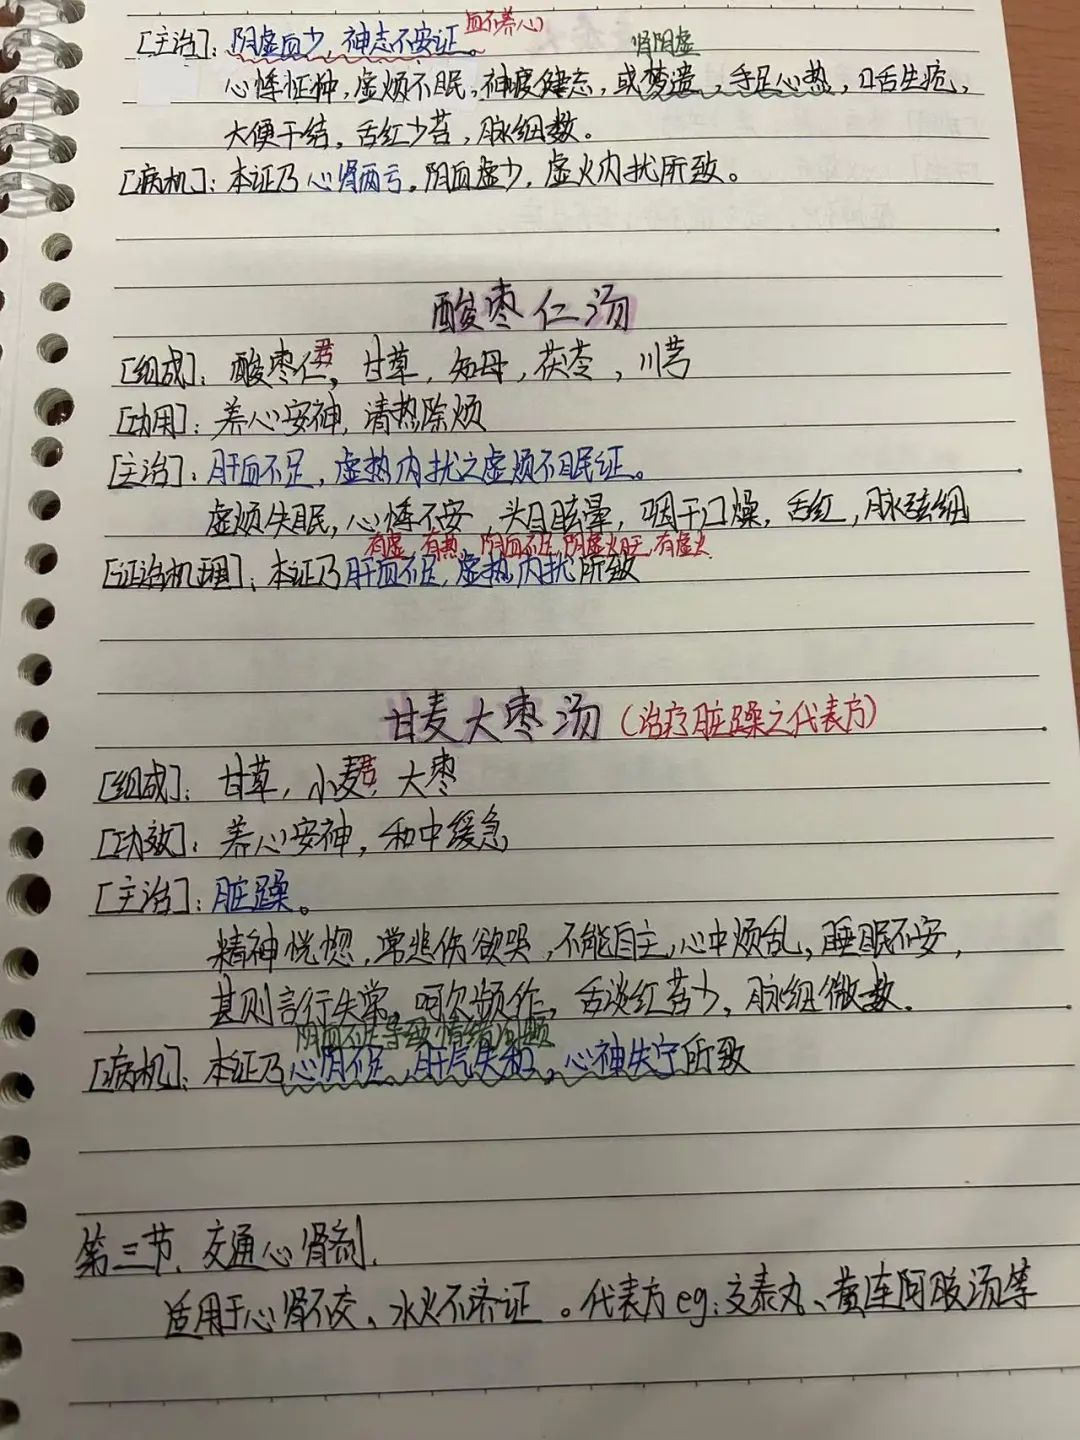 血不养心)
[主治]: 阴虚血少, 神志不安证。
肾阴虚
心悸怔忡, 虚烦不眠, 神疲健忘, 或梦遗, 手足心热, 口舌生疮,
大便干结, 舌红少苔, 脉细数。
[病机]: 本证乃心肾两亏, 阴血虚少, 虚火内扰所致。
酸枣仁汤
[组成]: 酸枣仁君, 甘草, 知母, 茯苓, 川芎
[功用]: 养心安神, 清热除烦
[主治]: 肝血不足, 虚热内扰之虚烦不眠证。
虚烦失眠, 心悸不安, 头目眩晕, 咽干口燥, 舌红, 脉弦细
有虚, 有热, 阴血不足, 阴虚火旺, 有虚火
[证治机理]: 本证乃肝血不足, 虚热内扰所致
甘麦大枣汤 (治疗脏躁之代表方)
[组成]: 甘草, 小麦君, 大枣
[功效]: 养心安神, 和中缓急
[主治]: 脏躁。
精神恍惚, 常悲伤欲哭, 不能自主, 心中烦乱, 睡眠不安,
甚则言行失常, 呵欠频作, 舌淡红苔少, 脉细微数.
阴血不足导致情绪问题
[病机]: 本证乃心阴不足, 肝气失和, 心神失宁所致
第三节. 交通心肾剂.
适用于心肾不交、水火不济证。代表方eg: 交泰丸、黄连阿胶汤等